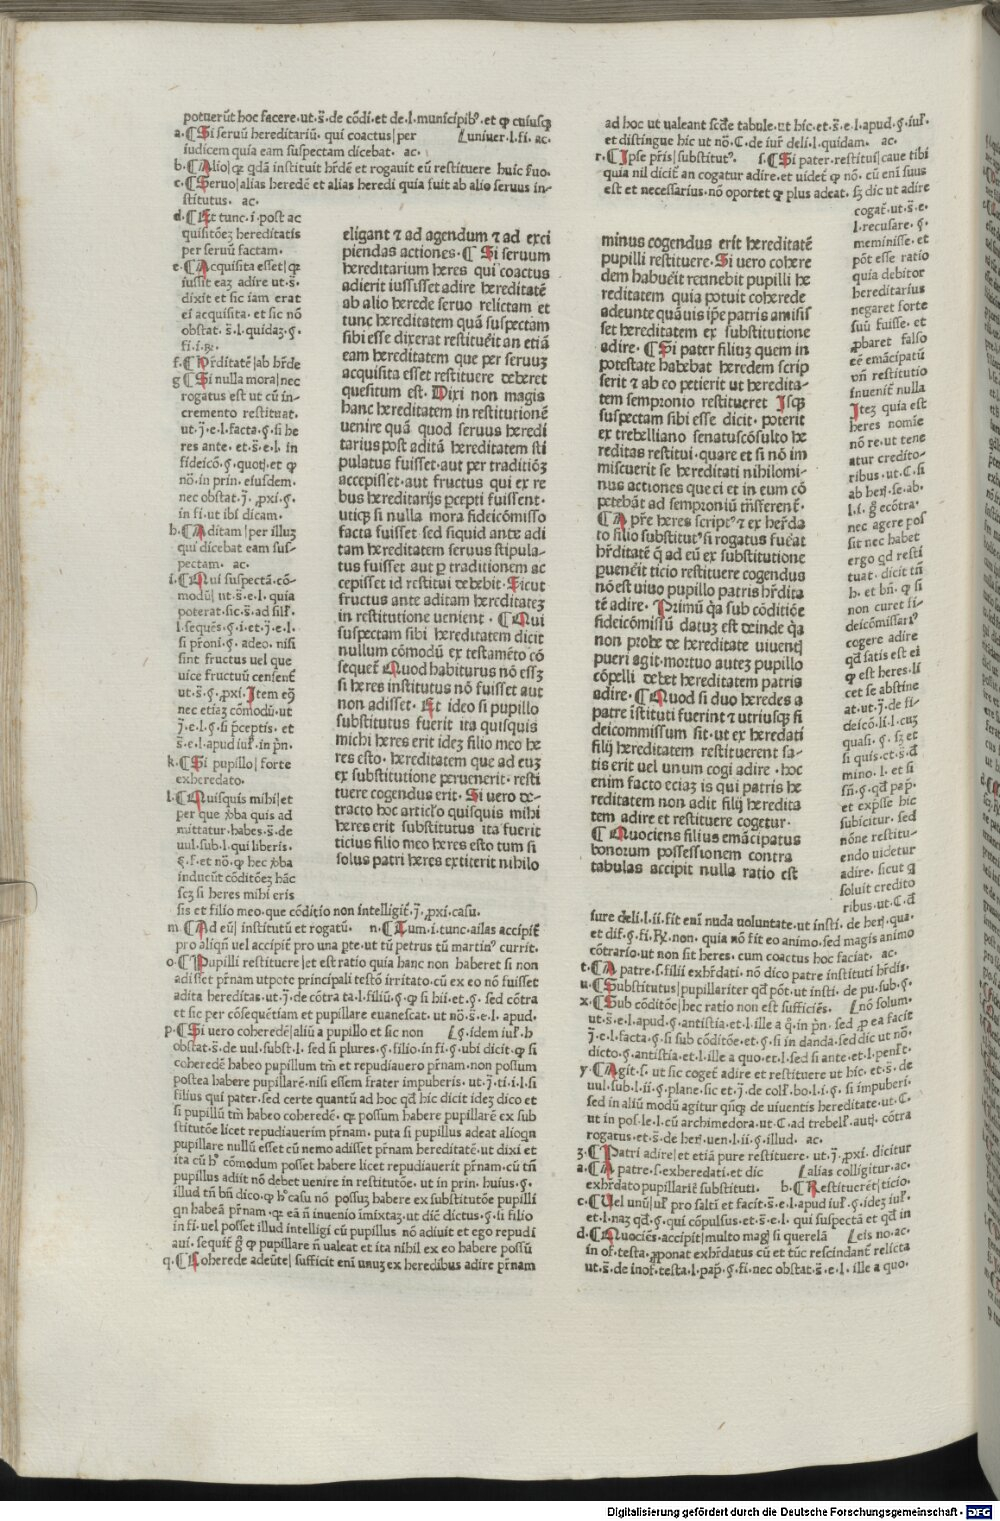 potuerūt hoc facere·ut·s̄·de cōdi·et de·l·municipibꝰ·et ꝙ cuiusꝗ
a·¶Si seruū hereditariū· qui coactus|per ⟦uniuer·l·fi· ac·
iudicem quia eam suspectam dicebat· ac·
b·¶Alio|ꝙ qdā instituit hr̄dē et rogauit eū restituere huic suo·
c·¶Seruo|alias heredē et alias heredi quia fuit ab alio seruus in-
stitutus· ac·
d·¶Et tunc·i·post ac
quisitōeꝫ hereditatis
per seruū factam·
e·¶Acquisita esset|ꝙ
iussit eaꝫ adire ut·s̄·
dixit et sic iam erat
ei acquisita·et sic nō
obstat·s̄·l·quidaꝫ·§·
fi·i·℞·
f·¶Hr̄ditatē|ab hr̄de
g ¶Si nulla mora|nec
rogatus est ut cū in-
cremento restituat·
ut·j̄·e·l·facta·§·si he
res ante·et·s̄·e·l· in
fideicō·§·quotꝭ·et ꝙ
nō·in prin·eiusdem·
nec obstat·j̄·ꝓxi·§·
in fi·ut ibi dicam·
h·¶Aditam|per illuꝫ
qui dicebat eam sus-
pectam· ac·
i·¶Qui suspectā·cō-
modū|ut·s̄·e·l·quia
poterat·sic·s̄·ad sill'·
l·sequēs·§·i·et·j̄·e·l·
si pr̄oni·§·adeo·nisi
sint fructus uel que
uice fructuū censent̄
ut·s̄·§·ꝓxi·Item eꝗ
nec etiaꝫ cōmodū·ut
j̄·e·l·§·si p̄ceptis· et
s̄·e·l·apud iul'·in pn̄·
k·¶Si pupillo|forte
exheredato·
l·¶Quisquis mihi|et
per que ꝟba quis ad
mittatur·habes·s̄·de
uul·sub·l·qui liberis·
§·f·et nō·ꝙ hec ꝟba
inducūt cōditōeꝫ hāc
scꝫ si heres mihi eris
eligant ⁊ ad agendum ⁊ ad exci
piendas actiones·¶Si seruum
hereditarium heres qui coactus
adierit iussisset adire hereditatē
ab alio herede seruo relictam et
tunc hereditatem quā suspectam
sibi esse dixerat restituēit an etiā
eam hereditatem que per seruuꝫ
acquisita esset restituere deberet
quesitum est·Dixi non magis
hanc hereditatem in restitutionē
uenire quā quod seruus heredi
tarius post aditā hereditatem sti
pulatus fuisset·aut per traditiōeꝫ
accepisset·aut fructus qui ex re
bus hereditarijs ꝑcepti fuissent·
utiqꝫ si nulla mora fideicōmisso
facta fuisset sed siquid ante adi
tam hereditatem seruus stipula-
tus fuisset aut ꝑ traditionem ac
cepisset id restitui debebit·Sicut
fructus ante aditam hereditateꝫ
in restitutione uenient·¶Qui
suspectam sibi hereditatem dicit
nullum cōmodū ex testamēto cō
sequet̄ Quod habiturus nō esꝫ
si heres institutus nō fuisset aut
non adisset·Et ideo si pupillo
substitutus fuerit ita quisquis
michi heres erit ideꝫ filio meo he
res esto·hereditatem que ad euꝫ
ex substitutione peruenerit·resti
tuere cogendus erit·Si uero de-
tracto hoc articlo quisquis mihi
heres erit substitutus ita fuerit
ticius filio meo heres esto tum si
solus patri heres extiterit nihilo
sis et filio meo·que cōditio non intelligit̄·j̄·ꝓxi·casu·
m·¶Ad eū|institutū et rogatū· n·¶Tum·i·tunc·ailas accipit̄
pro aliqn̄ uel accipit̄ pro una ꝑte·ut tū petrus tū martinꝰ currit·
o·¶Pupilli restituere|et est ratio quia hanc non haberet si non
adisset pr̄nam utpote principali testō irritato·cū ex eo nō fuisset
adita hereditas·ut·j̄·de cōtra ta·l·filiū·§·ꝙ si hii·et·§· sed cōtra
et sic per cōsequētiam et pupillare euanescat·ut nō·s̄·e·l·apud·
p·¶Si uero coheredē|aliū a pupillo et sic non ⟦§·idem iul'·h
obstat·s̄·de uul·subst·l· sed si plures·§·filio·in fi·§·ubi dicit·ꝙ si
coheredē habeo pupillum tm̄ et repudiauero pr̄nam·non possum
postea habere pupillarē·nisi essem frater impuberis·ut·j̄·ti·i·l·si
filius qui pater·sed certe quantū ad hoc qd̄ hic dicit ideꝫ dico et
si pupillū tm̄ habeo coheredē· ꝙ possum habere pupillarē ex sub
stitutōe licet repudiauerim pr̄nam· puta si pupillus adeat alioqn
pupillare nullū esset cū nemo adisset pr̄nam hereditatē·ut dixi et
ita cū hͦ cōmodum posset habere licet repudiauerit pr̄nam·cū tn̄
pupillus adiit nō debet uenire in restitutōe· ut in prin· huius·§·
illud tn̄ bn̄ dico·ꝙ hͦ casu nō possuꝫ habere ex substitutōe pupilli
qn habeā pr̄nam·ꝙ eā n̄ inuenio imixtaꝫ·ut dic̄ dictus·§·si filio
in fi·uel posset illud intelligi cū pupillus nō adiuit et ego repudi
aui· sequit̄ g̊ ꝙ pupillare n̄ ualeat et ita nihil ex eo habere possū
q·¶Coherede adeūte| sufficit eni unuꝫ ex heredibus adire pr̄nam
ad hoc ut ualeant scd̄e tabule·ut hic·et·s̄·e·l·apud·§·iul'·
et distingue hic ut nō·C·de iur̄ deli·l·quidam· ac·
r·¶Ipse pr̄is|substitutꝰ· s·¶Si pater·restitui|caue tibi
quia nil dicit̄ an cogatur adire·et uidet̄ ꝙ nō· cū eni suus
est et necessarius·nō oportet ꝙ plus adeat· sꝫ dic ut adire
cogat̄·ut·s̄·e·
l·recusare·§·
meminisse·et
pōt esse ratio
quia debitor
hereditarius
negaret forte
suū fuisse·et
ꝓbaret falso
eē emācipatū
vn̄ restitutio
inuenit̄ nulla
Iteꝫ quia est
heres nomīe
nō re·ut tene
atur credito-
ribus·ut·C·si
ab herꝭ·se·ab·
l·i·g̊ ecōtra·
nec agere pos
sit nec habet
ergo qd̄ resti
tuat· dicit tn̄
h· et bn̄·ꝙ si
non curet fi-
deicōmissariꝰ
cogere adire
qd̄ satis est ei
ꝙ est heres·li
cet se abstine
at·ut·j̄·de fi-
deicō·li·l·cuꝫ
quasi·§·sꝫ et
si quis·et·s̄·d̄
mino·l·et si
sn̄·§·qd̄ pap̄·
et exp̄sse hic
subicitur· sed
nōne restitu-
endo uidetur
adire·sicut ꝗ
soluit credito
ribus·ut·C·d̄
minus cogendus erit hereditatē
pupilli restituere·Si uero cohere
dem habuēit retinebit pupilli he
reditatem quia potuit coherede
adeunte quāuis ip̄e patris amisis
set hereditatem ex substitutione
adire·¶Si pater filiuꝫ quem in
potestate habebat heredem scrip
serit ⁊ ab eo petierit ut heredita-
tem sempronio restitueret Isqꝫ
suspectam sibi esse dicit· poterit
ex trebelliano senatuscōsulto he
reditas restitui·quare et si nō im
miscuerit se hereditati nihilomi-
nus actiones que ei et in eum cō
petebāt ad semproniū trāsferent̄·
¶A pr̄e heres scriptꝰ ⁊ ex her̄da
to filio substitutꝰ si rogatus fuēat
hr̄ditatē q̄ ad eū ex substitutione
ꝑuenēit ticio restituere cogendus
nō est uiuo pupillo patris hr̄dita
tē adire·Primū q̄a sub cōditiōe
fideicōmissū datuꝫ est deinde q̄a
non probe de hereditate uiuentꝭ
pueri agit·mortuo auteꝫ pupillo
cōpelli debet hereditatem patris
adire·¶Quod si duo heredes a
patre īstituti fuerint ⁊ utriusqꝫ fi
deicommissum sit·ut ex heredati
filij hereditatem restituerent sa-
tis erit uel unum cogi adire·hoc
enim facto eciaꝫ is qui patris he
reditatem non adit filij heredita
tem adire et restituere cogetur·
¶Quociens filius emācipatus
bonorum possessionem contra
tabulas accipit nulla ratio est
iure deli·l·ii·fit eni nuda uoluntate·ut insti· de herꝭ·qua·
et dif·§·fi·℟·non· quia nō fit eo animo·sed magis animo
cōtrario·ut non sit heres· cum coactus hoc faciat· ac·
t·¶A patre·s·filii exhr̄dati· nō dico patre instituti hr̄dis·
u·¶Substitutus|pupillariter qd̄ pōt·ut insti· de pu·sub·§·
x·¶Sub cōditōe|hec ratio non est sufficiēs· ⟦nō solum·
ut·s̄·e·l·apud·§·antistia·et·l·ille a q̊·in pn̄· sed ꝓ ea facit
j̄·e·l·facta·§·si sub cōditōe·et·§·si in danda·sed dic ut nō·
dicto·§·antistia·et·l·ille a quo·et·l·sed si ante·et·l·penl't·
y·¶Agit·s·ut sic coget̄ adire et restituere ut hic·et·s̄·de
uul·sub·l·ii·§·plane·sic et·j̄·de coll'·bo·l·i·§· si impuberi·
sed in aliū modū agitur qn̄qꝫ de uiuentis hereditate·ut·C·
ut in pos·le·l·cū archimedora·ut·C·ad trebell'·autꝭ·cōtra
rogatus·et·s̄·de herꝭ·uen·l·ii·§·illud· ac·
ʒ·¶Patri adire|et etiā pure restituere· ut·j̄·ꝓxi·dicitur
a·¶A patre·s·exheredati·et dic ⟦alias colligitur·ac·
exhr̄dato pupillarit̄ substituti· b·¶Restituerēt|ticio·
c·¶Uel unū|ul' pro saltī et facit·s̄·e·l·apud iul'·§·ideꝫ iul'·
et·l·naꝫ qd̄·§·qui cōpulsus·et·s̄·e·l· qui suspectā et qd̄ in
d·¶Quociēs·accipit|multo magꝭ si querelā ⟦eis no·ac·
in of·testa·ꝓponat exhr̄datus cū et tūc rescindant̄ relicta
ut·s̄·de inof·testa·l·pap̄·§·fi·nec obstat·s̄·e·l·ille a quo·
Digitalisierung gefördert durch die Deutsche Forschungsgemeinschaft - DFG